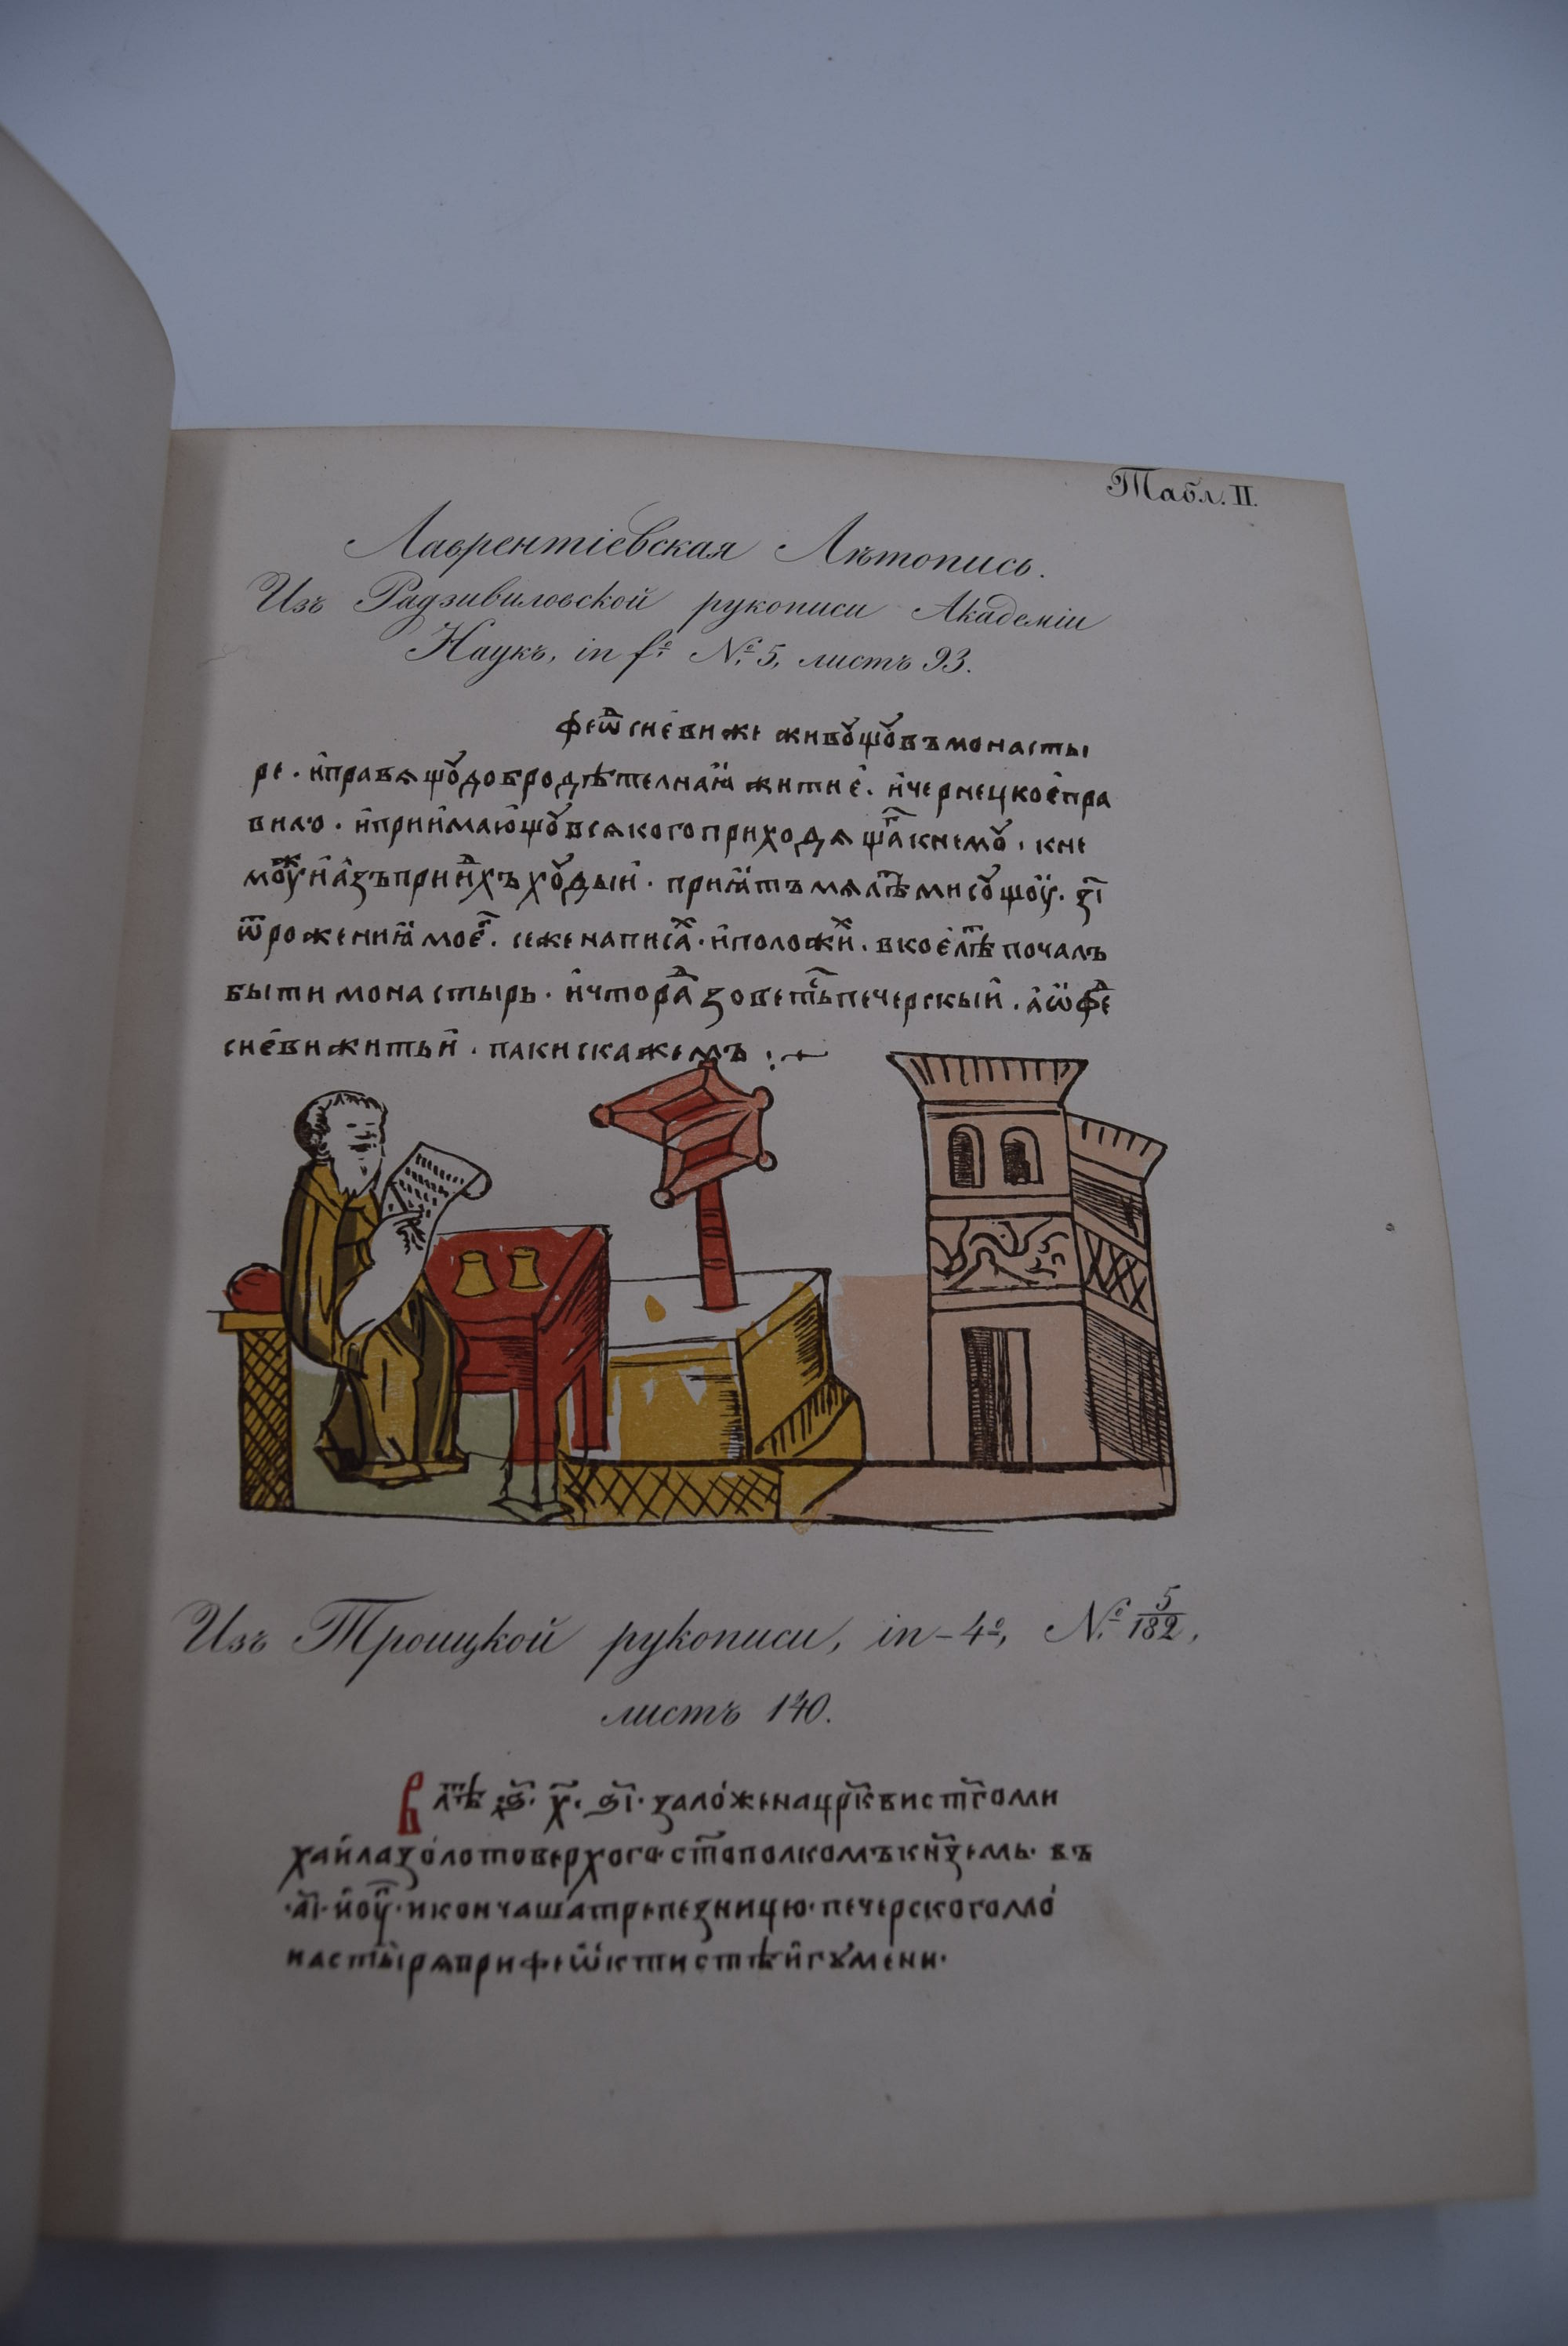 Табл. II.
Лаврентіевская Лѣтопись.
Изъ Радзивиловской рукописи Академіи
Наукъ, in fº. №. 5, листъ 93.
феѡⷣсиеви же живꙋщꙋ въ монасты
ре . и правѧщꙋ добродѣтелнаꙗ житие . и чернецкое пра
вило . и приимающꙋ всѧкого приходѧщаⷢ к немꙋ . к не
моуⷤ и азъ приидⷯъ хꙋдыи . приꙗтъ мѧ лⷮѣ ми сꙋщоу . з҃і
ѿ рожениꙗ моеⷢ . се же написаⷯ . и положиⷯ . в кое лⷮѣ почалъ
быти монастырь . и что раⷣ зоветьⷭ печерскыи . а ѡ феⷣ
сиеви житьи . паки скажемъ :
Изъ Троицкой рукописи, in-4º, №. 5/182,
листъ 140.
В лⷮѣ ҂ѕ҃. х҃. ѕ҃і. заложена цр҃кви ст҃го ми
хаила золотоверхого ст҃ополкомъ кн҃земь. въ
.а҃і. июⷧ. и кончаша трепезницю. печерского мо
настырѧ при феѡктистѣ игꙋмени.